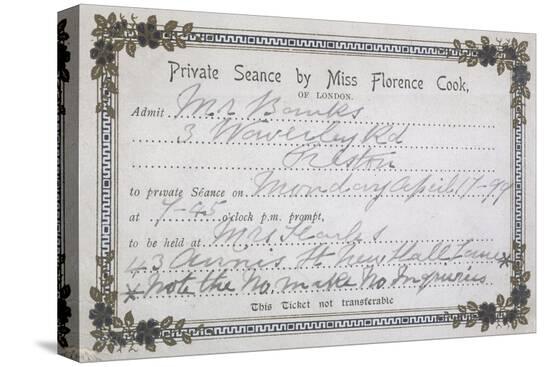 Private Seance by Miss Florence Cook,
OF LONDON.
Admit Mr Banks
3 Waverley Rd
Preston
to private Séance on Monday April 17-99
at 7-45 o'clock p.m. prompt,
to be held at Mrs Searles
43 Annis St New Hall Lane *
* Note the No. make No Inquiries
This Ticket not transferable